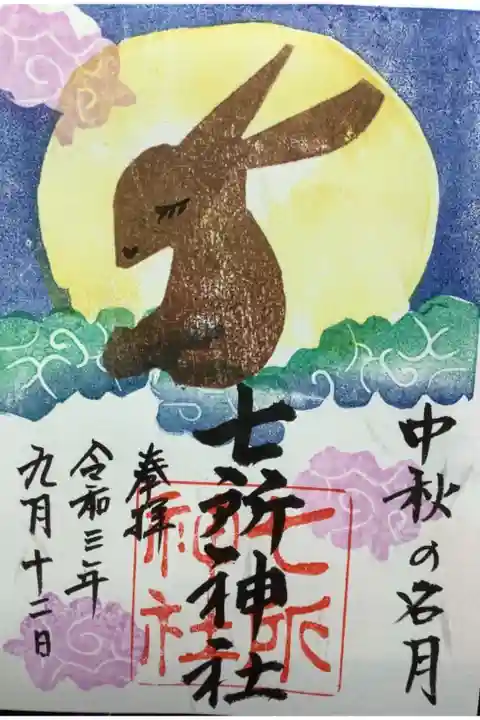 中秋の名月
七所神社
七所
神社
奉拝
令和三年
九月十二日